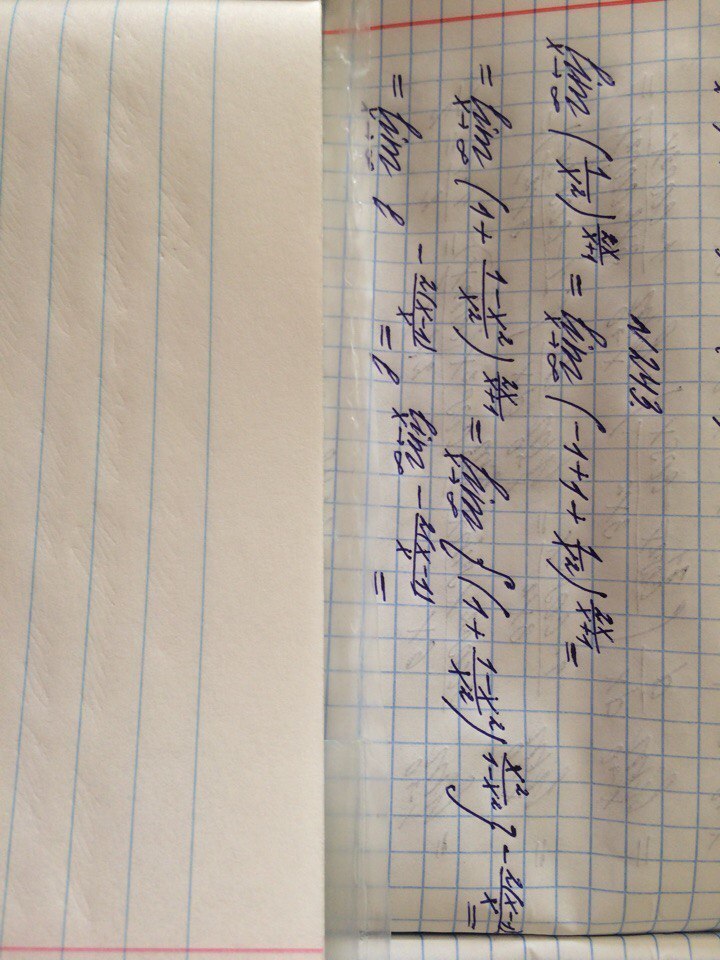 N 243
lim x→∞ (1/x²)^(2x/(x+1)) = lim x→∞ (-1+1+1/x²)^(2x/(x+1)) =
= lim x→∞ (1+(1-x²)/x²)^(2x/(x+1)) = lim x→∞ {(1+(1-x²)/x²)^(x²/(1-x²))}^(-2(x-1)/x) =
= lim x→∞ e^(-2(x-1)/x) = e^(lim x→∞ -2(x-1)/x) =